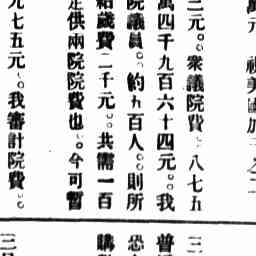 三元。。衆議院費。八七五
萬四千九百六十四元。。我
院議員。約九百人。。則所
給歲費二千元。。共需一百
供兩院院費也。。今可暫
九七五元。我審計院費。。
三
普
恐
購
三